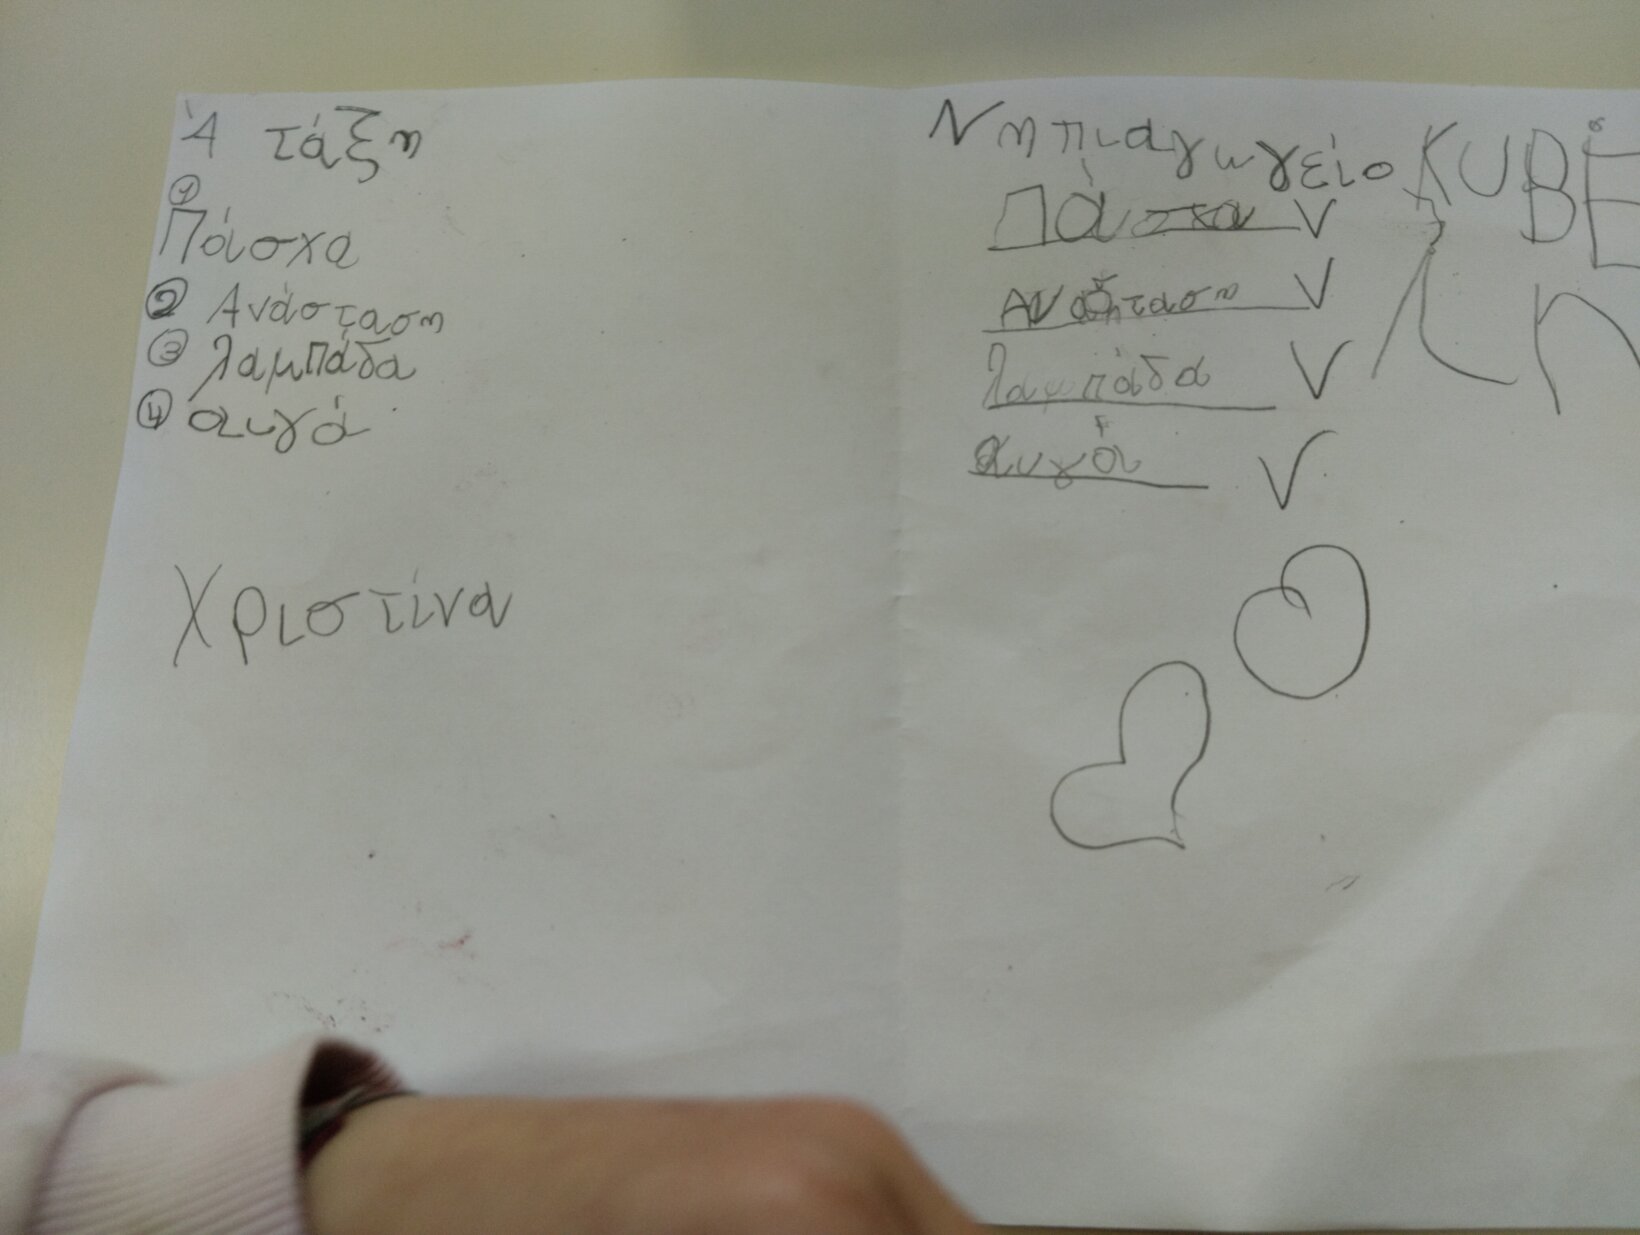 Ά τάξη
①
Πάσχα
② Ανάσταση
③ λαμπάδα
④ αυγά
Χριστίνα
Νηπιαγωγείο
Πάσχα ✓
✓
λαμπάδα ✓
αυγά ✓
ΚυΒΕ
λη